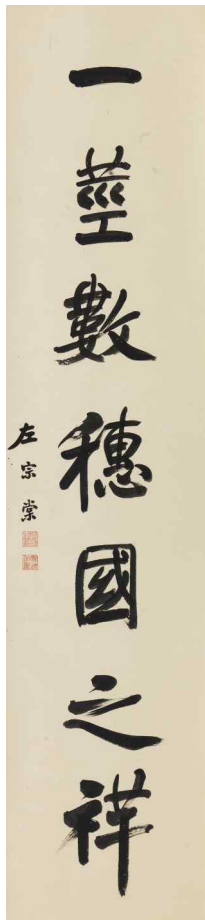 一莖數穗國之祥
左宗棠